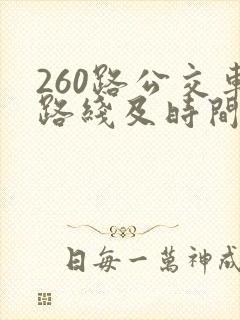 260路公交車
路綫及時間
日每一萬神成